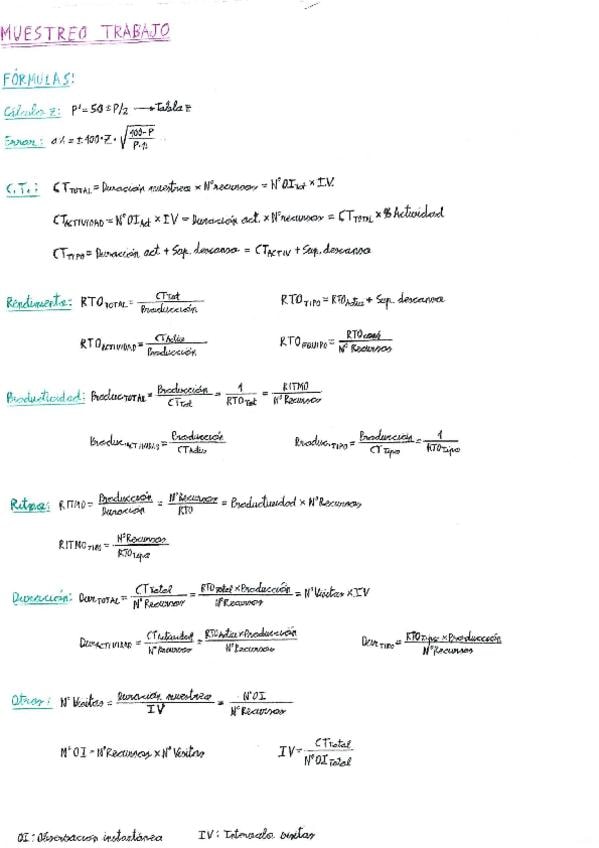 MUESTREO TRABAJO
FÓRMULAS:
Cálculo Z: P' = 50 ± P/2 → Tabla Z
Error: a% = ± 100 · Z · √(100-P / P·n)
C.T.: CT TOTAL = Duración muestreo × Nº recursos = Nº OI Tot × I.V.
CT ACTIVIDAD = Nº OI Act × IV = Duración act. × Nº recursos = CT TOTAL × % Actividad
CT TIPO = Duración act + Sup. descanso = CT ACTIV + Sup. descanso
Rendimiento: RTO TOTAL = CT Tot / Producción RTO TIPO = RTO Activ + Sup. descanso
RTO ACTIVIDAD = CT Activ / Producción RTO EQUIPO = RTO / Nº Recursos
Productividad: Produc. TOTAL = Producción / CT Tot = 1 / RTO Tot = RITMO / Nº Recursos
Produc. ACTIVIDAD = Producción / CT Activ Produc. TIPO = Producción / CT Tipo = 1 / RTO Tipo
Ritmo: RITMO = Producción / Duración = Nº Recursos / RTO = Productividad × Nº Recursos
RITMO TIPO = Nº Recursos / RTO Tipo
Duración: Dur TOTAL = CT Total / Nº Recursos = RTO Total × Producción / Nº Recursos = Nº Visitas × IV
Dur ACTIVIDAD = CT Actividad / Nº Recursos = RTO Activ × Producción / Nº Recursos Dur TIPO = RTO Tipo × Producción / Nº Recursos
Otros: Nº Visitas = Duración muestreo / IV = Nº OI / Nº Recursos
Nº OI = Nº Recursos × Nº Visitas IV = CT Total / Nº OI Total
OI: Observación instantánea IV: Intervalo visitas